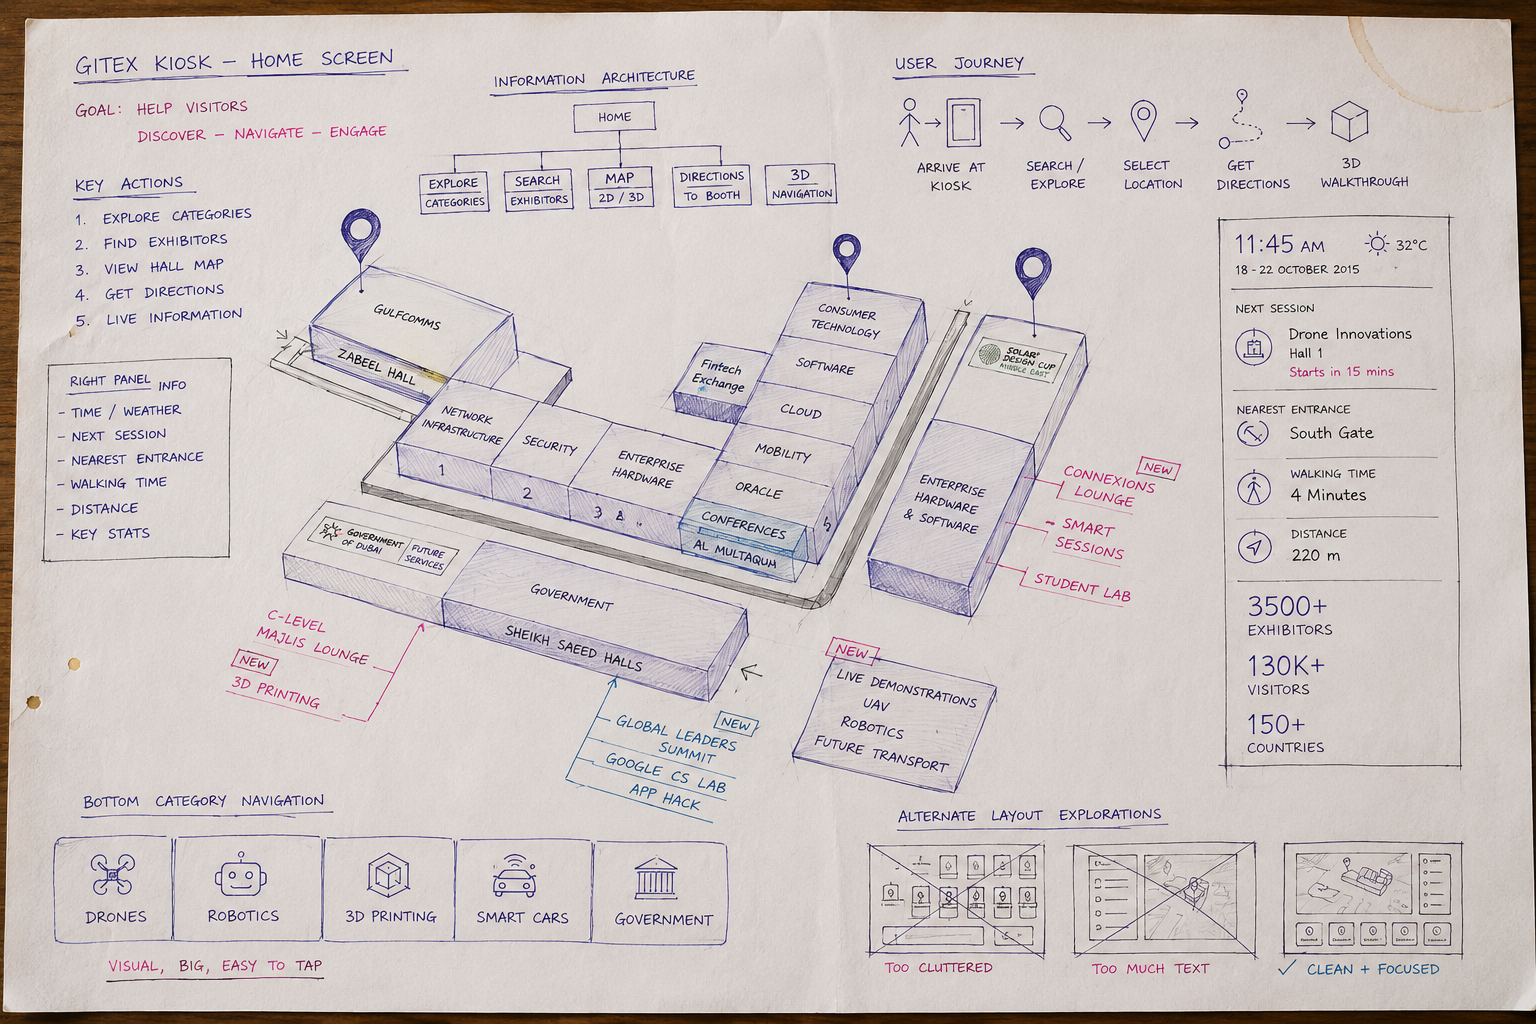 GITEX KIOSK — HOME SCREEN
GOAL: HELP VISITORS
DISCOVER — NAVIGATE — ENGAGE
KEY ACTIONS
1. EXPLORE CATEGORIES
2. FIND EXHIBITORS
3. VIEW HALL MAP
4. GET DIRECTIONS
5. LIVE INFORMATION
RIGHT PANEL INFO
- TIME / WEATHER
- NEXT SESSION
- NEAREST ENTRANCE
- WALKING TIME
- DISTANCE
- KEY STATS
INFORMATION ARCHITECTURE
HOME
EXPLORE
CATEGORIES
SEARCH
EXHIBITORS
MAP
2D / 3D
DIRECTIONS
TO BOOTH
3D
NAVIGATION
USER JOURNEY
ARRIVE AT
KIOSK
SEARCH /
EXPLORE
SELECT
LOCATION
GET
DIRECTIONS
3D
WALKTHROUGH
GULFCOMMS
ZABEEL HALL
NETWORK
INFRASTRUCTURE
1
SECURITY
2
ENTERPRISE
HARDWARE
3
Fintech
Exchange
CONSUMER
TECHNOLOGY
SOFTWARE
CLOUD
MOBILITY
ORACLE
CONFERENCES
AL MULTAQUM
SOLAR
DESIGN CUP
MIDDLE EAST
ENTERPRISE
HARDWARE
& SOFTWARE
NEW
CONNEXIONS
LOUNGE
SMART
SESSIONS
STUDENT LAB
GOVERNMENT
OF DUBAI
FUTURE
SERVICES
GOVERNMENT
SHEIKH SAEED HALLS
C-LEVEL
MAJLIS LOUNGE
NEW
3D PRINTING
NEW
GLOBAL LEADERS
SUMMIT
GOOGLE CS LAB
APP HACK
NEW
LIVE DEMONSTRATIONS
UAV
ROBOTICS
FUTURE TRANSPORT
11:45 AM
32°C
18 - 22 OCTOBER 2015
NEXT SESSION
Drone Innovations
Hall 1
Starts in 15 mins
NEAREST ENTRANCE
South Gate
WALKING TIME
4 Minutes
DISTANCE
220 m
3500+
EXHIBITORS
130K+
VISITORS
150+
COUNTRIES
BOTTOM CATEGORY NAVIGATION
DRONES
ROBOTICS
3D PRINTING
SMART CARS
GOVERNMENT
VISUAL, BIG, EASY TO TAP
ALTERNATE LAYOUT EXPLORATIONS
TOO CLUTTERED
TOO MUCH TEXT
✓ CLEAN + FOCUSED